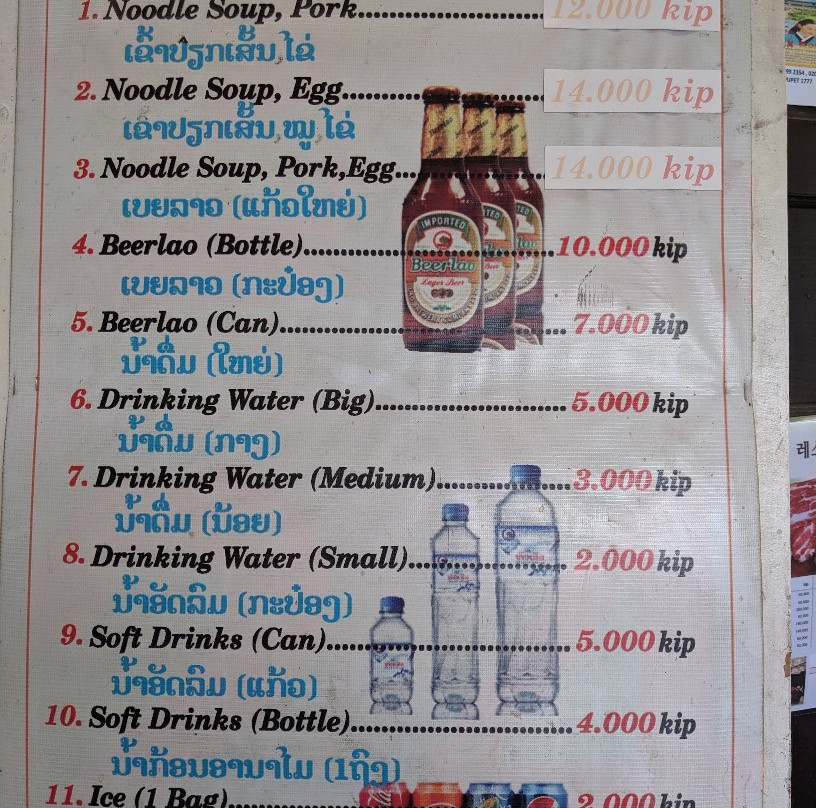 1. Noodle Soup, Pork 12.000 kip
ເຂົ້າປຽກເສັ້ນ, ໄຂ່
2. Noodle Soup, Egg 14.000 kip
ເຂົ້າປຽກເສັ້ນ, ໝູ, ໄຂ່
3. Noodle Soup, Pork,Egg 14.000 kip
ເບຍລາວ (ແກ້ວໃຫຍ່)
4. Beerlao (Bottle) 10.000 kip
ເບຍລາວ (ກະປ໋ອງ)
5. Beerlao (Can) 7.000 kip
ນ້ຳດື່ມ (ໃຫຍ່)
6. Drinking Water (Big) 5.000 kip
ນ້ຳດື່ມ (ກາງ)
7. Drinking Water (Medium) 3.000 kip
ນ້ຳດື່ມ (ນ້ອຍ)
8. Drinking Water (Small) 2.000 kip
ນ້ຳອັດລົມ (ກະປ໋ອງ)
9. Soft Drinks (Can) 5.000 kip
ນ້ຳອັດລົມ (ແກ້ວ)
10. Soft Drinks (Bottle) 4.000 kip
ນ້ຳກ້ອນອານາໄມ (1ຖົງ)
11. Ice (1 Bag) 2.000 kip
IMPORTED
Beerlao
Lager Beer